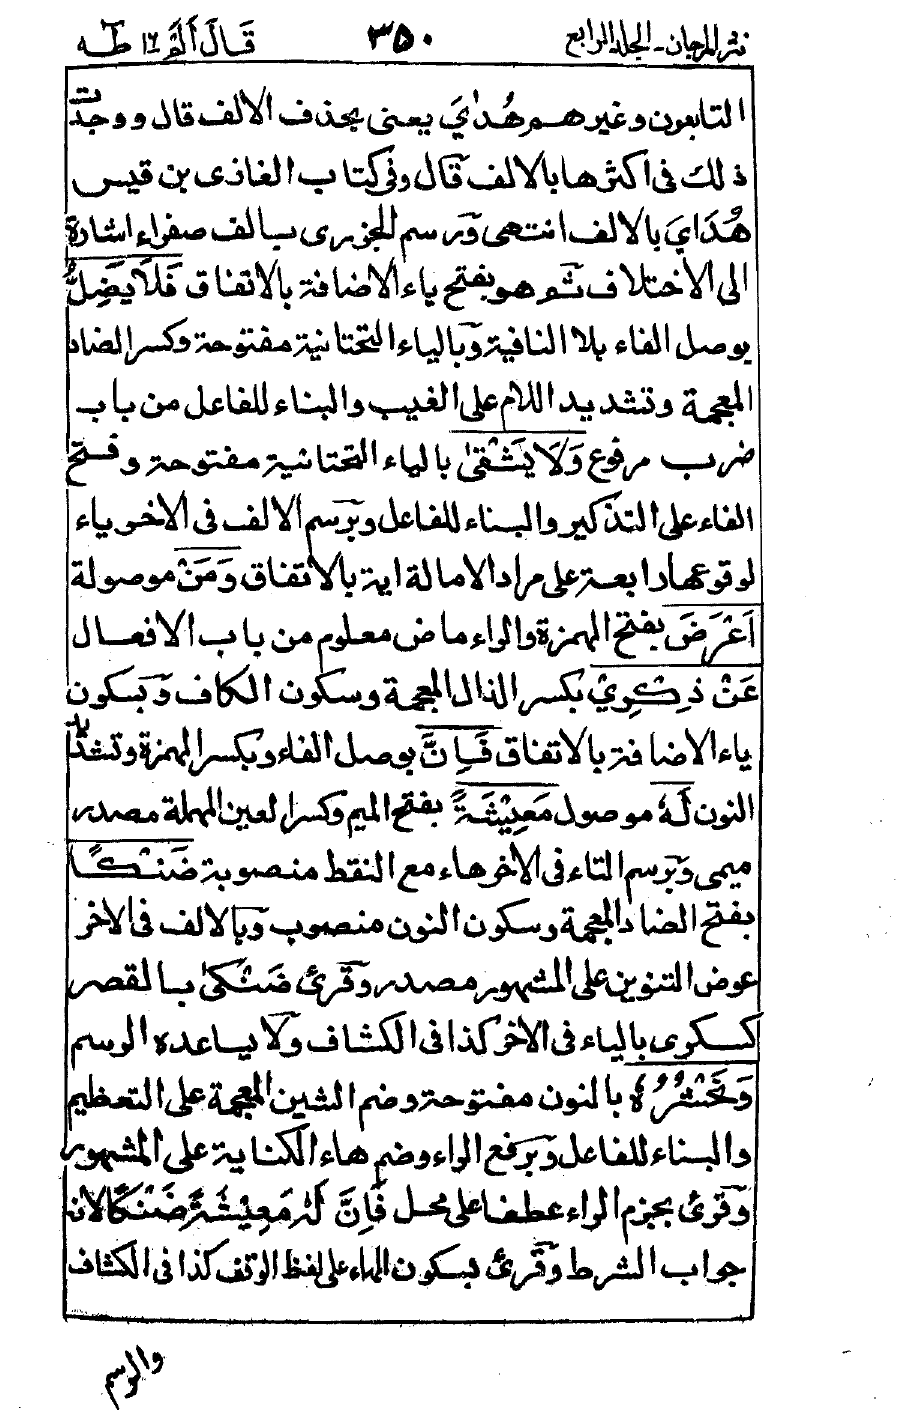 نثر المرجان - الجلد الرابع ٣٥٠ قَالَ أَلَمْ ١٦ طٰهٰ
التابعون وغيرهم هُدٰايَ يعنى بحذف الالف قال ووجدت
ذلك فى اكثرها بالالف قال وفى كتاب الغازى بن قيس
هُدَايَ بالالف انتهى ورسم الجزرى بالف صفراء اشارة
الى الاختلاف ثم هو بفتح ياء الاضافة بالاتفاق فَلَا يَضِلُّ
بوصل الفاء بلا النافية وبالياء التحتانية مفتوحة وكسر الضاد
المعجمة وتشديد اللام على الغيب والبناء للفاعل من باب
ضرب مرفوع وَلَا يَشْقٰى بالياء التحتانية مفتوحة وفتح
القاء على التذكير والبناء للفاعل وبرسم الالف فى الاخر ياء
لوقوعها رابعة على مراد الامالة اية بالاتفاق وَمَنْ موصولة
اَعْرَضَ بفتح الهمزة والراء ماض معلوم من باب الافعال
عَنْ ذِكْرِيْ بكسر الذال المعجمة وسكون الكاف وبسكون
ياء الاضافة بالاتفاق فَاِنَّ بوصل الفاء وبكسر الهمزة وتشديد
النون لَهٗ موصول مَعِيْشَةً بفتح الميم وكسر العين المهملة مصدر
ميمى وبرسم التاء فى الاخر هاء مع النقط منصوبة ضَنْكًا
بفتح الضاد المعجمة وسكون النون منصوب وبالالف فى الاخر
عوض التنوين على المشهور مصدر وقرئ ضَنْكٰى بالقصر
كسكرى بالياء فى الاخر كذا فى الكشاف ولا يساعده الرسم
وَنَحْشُرُهٗ بالنون مفتوحة وضم الشين المعجمة على التعظيم
والبناء للفاعل وبرفع الراء وضم هاء الكناية على المشهور
وقرئ بجزم الراء عطفا على محل فَاِنَّ لَهٗ مَعِيْشَةً ضَنْكًا لانه
جواب الشرط وقرئ بسكون الهاء على لفظ الوقف كذا فى الكشاف
والرسم